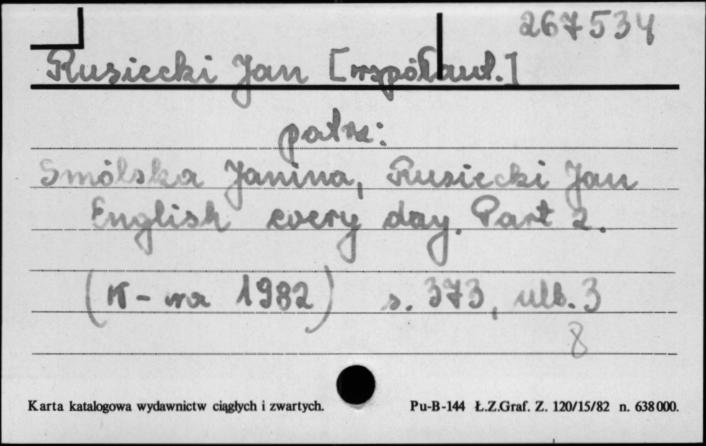 267534
Rusiecki Jan [współaut.]
patrz:
Smólska Janina, Rusiecki Jan
English every day. Part 2.
(W-wa 1982) s. 373, ulb. 3
8
Karta katalogowa wydawnictw ciągłych i zwartych. Pu-B-144 Ł.Z.Graf. Z. 120/15/82 n. 638000.